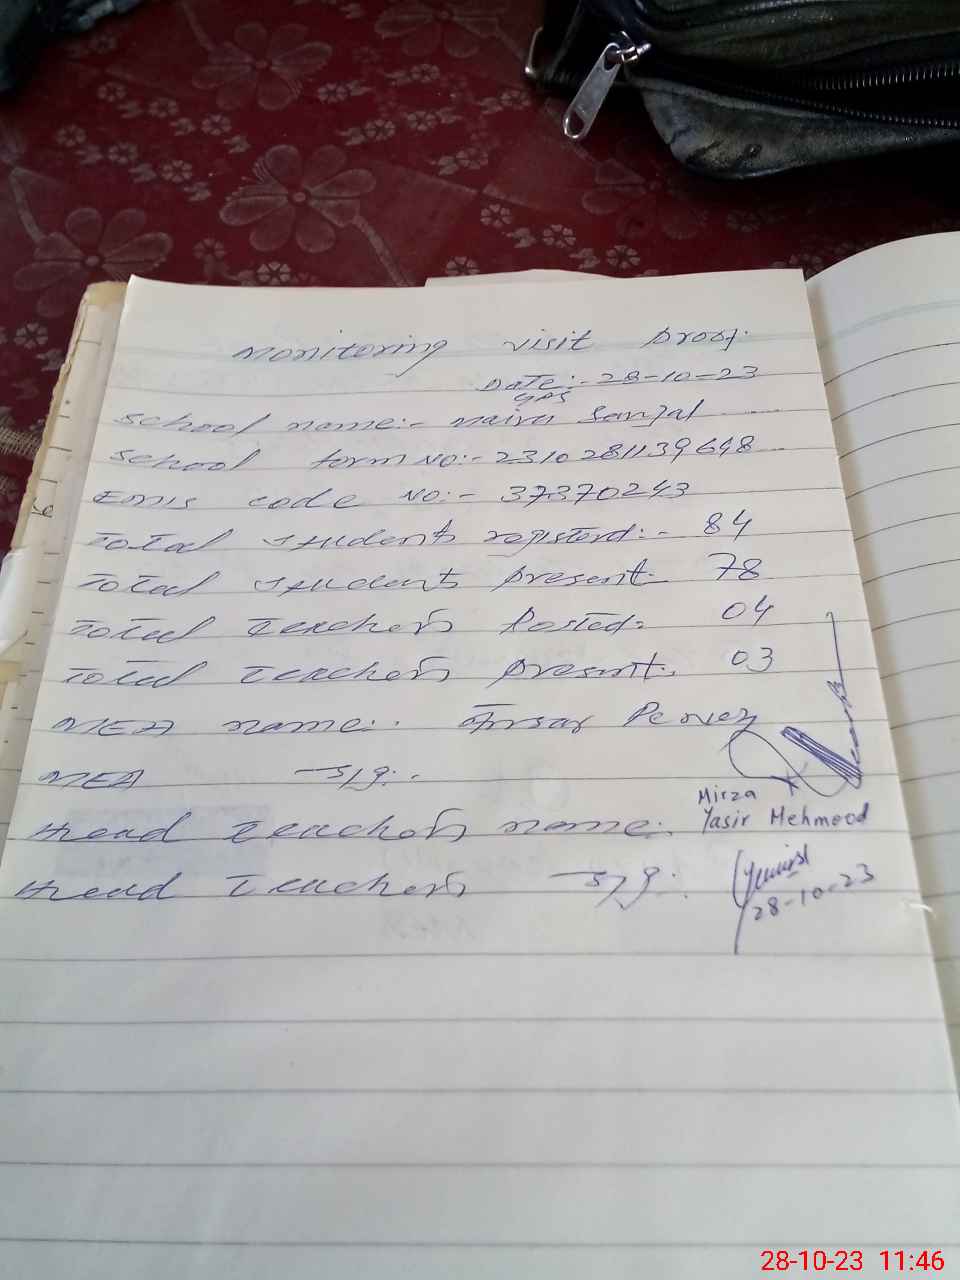 Monitoring visit proof.
Date:- 28-10-23
GPS
School name:- Maira Sanjal
School form No:- 2310281139698
Emis code No:- 37370243
Total students registerd:- 84
Total students present:- 78
Total Teachers Posted:- 04
Total Teachers present:. 03
MEA name:. Ansar Pervez
MEA sig:.
Mirza
Head Teachers name:. Yasir Mehmood
Head Teachers sig:.
28-10-23
28-10-23 11:46